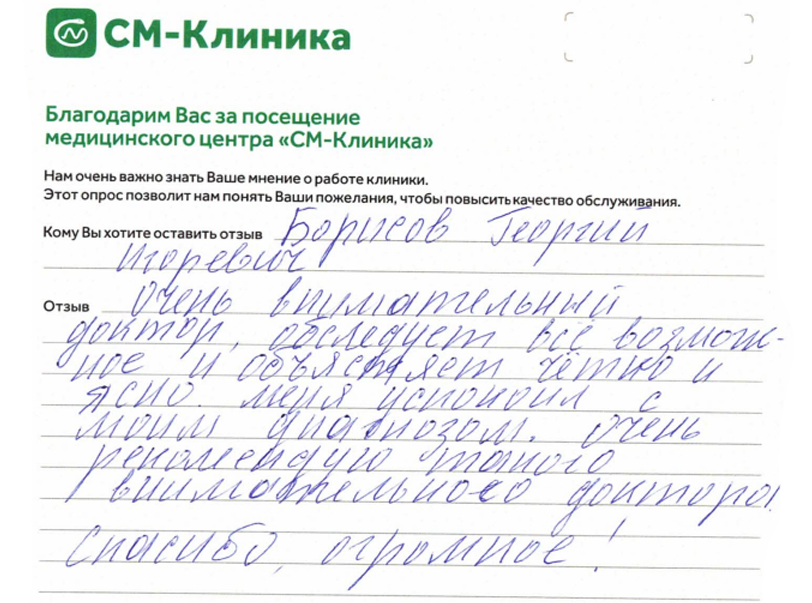 СМ-Клиника
Благодарим Вас за посещение
медицинского центра «СМ-Клиника»
Нам очень важно знать Ваше мнение о работе клиники.
Этот опрос позволит нам понять Ваши пожелания, чтобы повысить качество обслуживания.
Кому Вы хотите оставить отзыв Борисов Георгий
Игоревич
Отзыв очень внимательный
доктор, обследует всё возмож-
ное и объясняет чётко и
ясно. меня успокоил с
моим диагнозом. очень
рекомендую такого
внимательного доктора!
Спасибо, огромное!